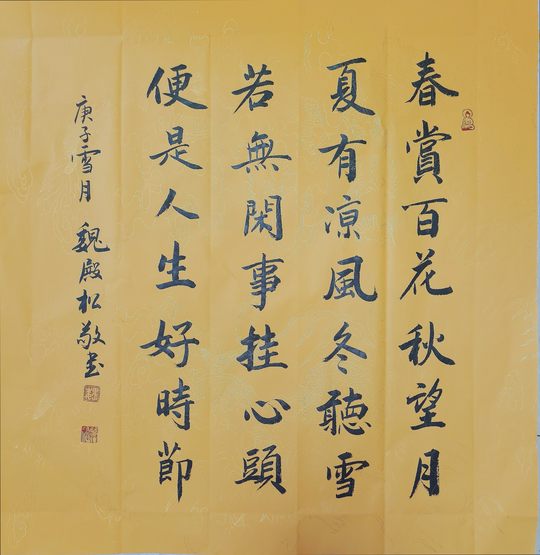 春賞百花秋望月
夏有凉風冬聽雪
若無閑事挂心頭
便是人生好時節
庚子雪月 魏殿松敬书